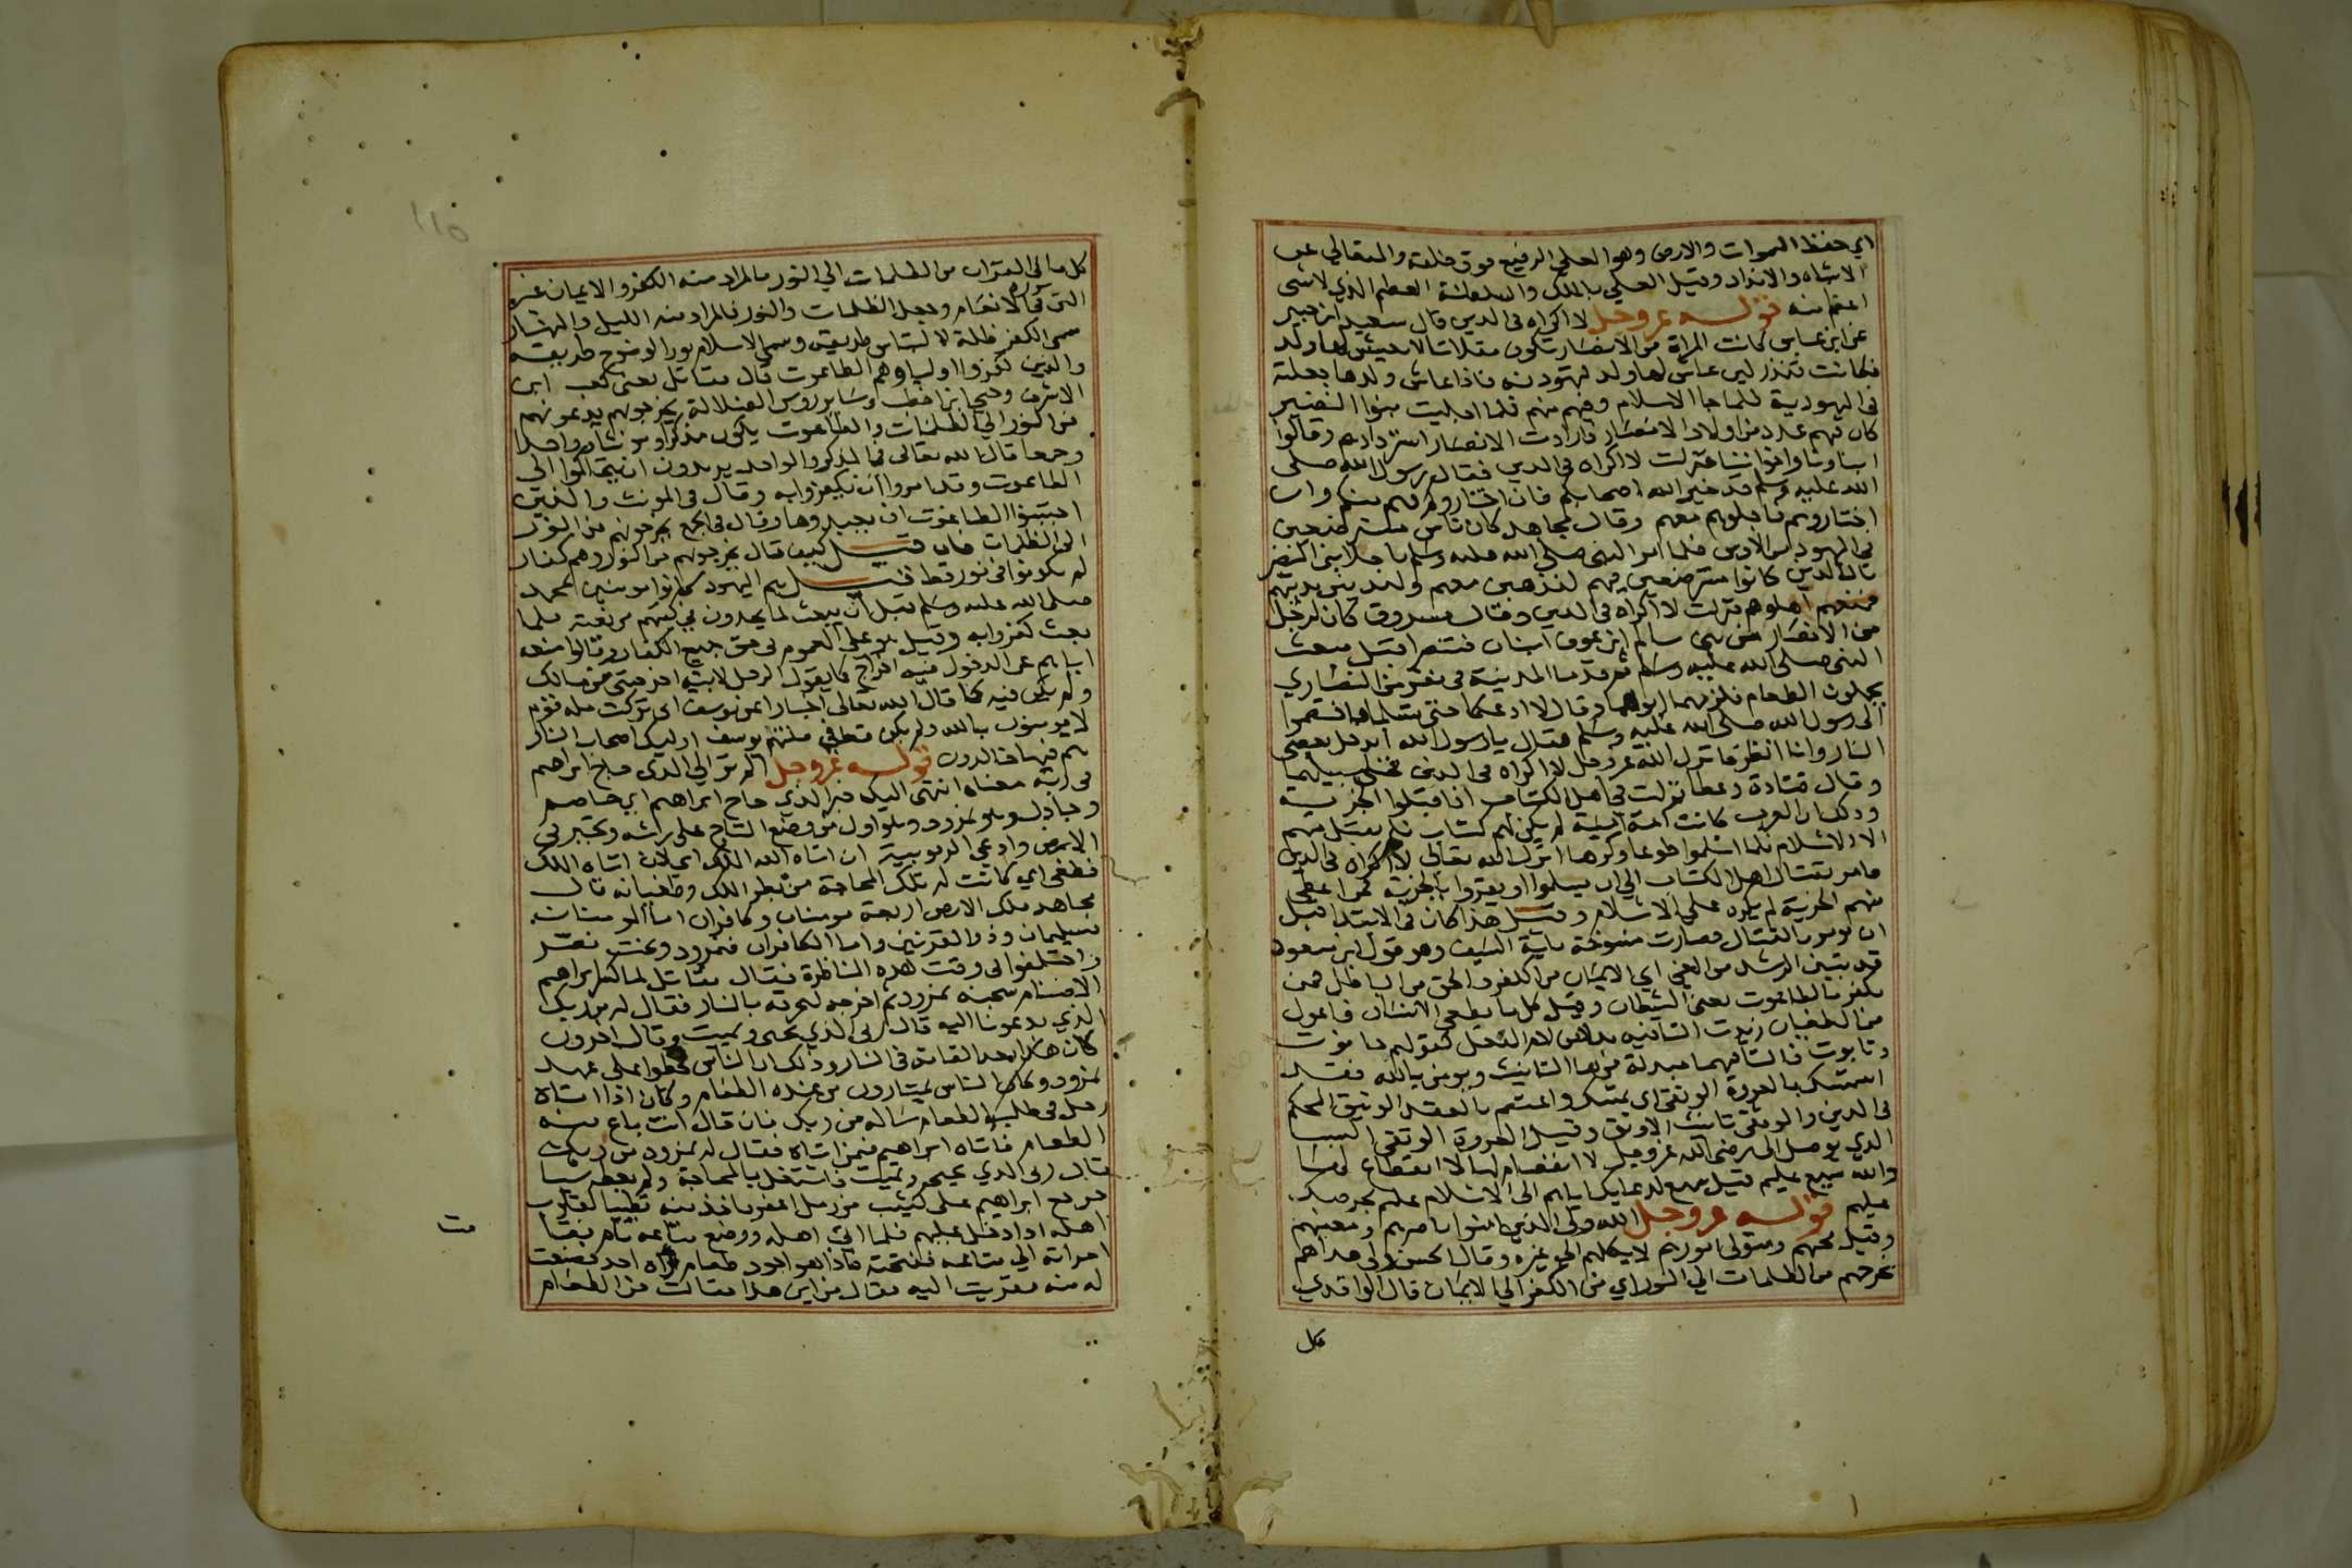 اي حفظ السموات والارض وهو العلي الرفيع فوق خلقه والمتعالي عن
الاشباه والانداد وقيل العلي بالملك والسلطنة العظيم الذي لا شي
اعظم منه قوله عز وجل لا اكراه في الدين قال سعيد ابن جبير
عن ابن عباس كانت المراة من الانصار تكون مقلاتا لا يعيش لها ولد
فكانت تنذر لين عاش لها ولد لتهودنه فاذا عاش ولدها جعلته
في اليهودية فلما جا الاسلام وفيهم منهم فلما اجليت بنوا النضير
كان فيهم عدد من اولاد الانصار فارادت الانصار استردادهم وقالوا
ابناونا واخواننا فنزلت لا اكراه في الدين فقال رسول الله صلى
الله عليه وسلم قد خير الله اصحابكم فان اختاروكم فهم منكم وان
اختاروهم فاجلوهم معهم وقال مجاهد كان ناس مسترضعين
في اليهود من الاوس فلما امر النبي صلى الله عليه وسلم باجلا بني النضير
قال الذين كانوا مسترضعين فيهم لنذهبن معهم ولندينن بدينهم
فمنعهم اهلوهم فنزلت لا اكراه في الدين وقال مسروق كان لرجل
من الانصار من بني سالم ابن عوف ابنان فتنصرا قبل مبعث
النبي صلى الله عليه وسلم ثم قدما المدينة في نفر من النصاري
يحملون الطعام فلزمهما ابوهما وقال لا ادعكما حتى تسلما فاختصموا
الى رسول الله صلى الله عليه وسلم فقال يا رسول الله ايدخل بعضي
النار وانا انظر فانزل الله عز وجل لا اكراه في الدين فخلى سبيلهما
وقال قتادة وعطا نزلت في اهل الكتاب اذا قبلوا الجزية
وذلك ان العرب كانت امة امية لم يكن لهم كتاب فلم يقبل منهم
الا الاسلام فلما اسلموا طوعا وكرها انزل الله تعالى لا اكراه في الدين
فامر بقتال اهل الكتاب الى ان يسلموا او يقروا بالجزية فمن اعطى
منهم الجزية لم يكره على الاسلام وقيل هذا كان في الابتدا قبل
ان يومر بالقتال فصارت منسوخة باية السيف وهو قول ابن مسعود
قد تبين الرشد من الغي اي الايمان من الكفر والحق من الباطل فمن
يكفر بالطاغوت يعني الشيطان وقيل كل ما يطغي الانسان فاعول
من الطغيان زيدت التا فيه بدلا من لام الفعل كقولهم حانوت
وتابوت فالتا فيهما مبدلة من ها التانيث ويومن بالله فقد
استمسك بالعروة الوثقى اي تمسك واعتصم بالعقد الوثيق المحكم
في الدين والوثقى تانيث الاوثق وقيل العروة الوثقى السبب
الذي يوصل الى رضي الله عز وجل لا انفصام لها لا انقطاع لها
والله سميع عليم قيل سميع لدعايك اياهم الى الاسلام عليم بحرصك
عليم قوله عز وجل الله ولي الذين امنوا ناصرهم ومعينهم
وقيل محبهم ومتولي امورهم لا يكلهم الى غيره وقال الحسن ولي هداهم
يخرجهم من الظلمات الي النور اي من الكفر الي الايمان قال الواقدي
كل
١١٥
كل ما في القران من الظلمات الي النور فالمراد منه الكفر والايمان غير
التي في سورة الانعام وجعل الظلمات والنور فالمراد منه الليل والنهار
سمي الكفر ظلمة لالتباس طريقه وسمي الاسلام نورا لوضوح طريقه
والذين كفروا اولياوهم الطاغوت قال مقاتل يعني كعب ابن
الاشرف وحيي ابن اخطب وساير روس الضلالة يخرجونهم يدعونهم
من النور الي الظلمات والطاغوت يكون مذكرا ومونثا وواحدا
وجمعا قال الله تعالى في المذكر والواحد يريدون ان يتحاكموا الى
الطاغوت وقد امروا ان يكفروا به وقال في المونث والذين
اجتنبوا الطاغوت ان يعبدوها وقال في الجمع يخرجونهم من النور
الى الظلمات فان قيل كيف قال يخرجونهم من النور وهم كفار
لم يكونوا في نور قط قيل هم اليهود كانوا مومنين بمحمد
صلى الله عليه وسلم قبل ان يبعث لما يجدون في كتبهم من نعته فلما
بعث كفروا به وقيل هو على العموم في حق جميع الكفار وقالوا منعه
اياهم عن الدخول فيه اخراج كما يقول الرجل لابيه اخرجتني من مالك
ولم يكن فيه كما قال الله تعالى اخبارا عن يوسف اني تركت ملة قوم
لا يومنون بالله ولم يكن قط في ملتهم يوسف اوليك اصحاب النار
هم فيها خالدون قوله عز وجل الم تر الي الذي حاج ابراهيم
في ربه معناه انتهى اليك خبر الذي حاج ابراهيم اي خاصم
وجادل وهو نمرود وهو اول من وضع التاج على راسه وتجبر في
الارض وادعي الربوبية ان اتاه الله الملك اي لان اتاه الملك
فطغى اي كانت له تلك المحاجة من بطر الملك وطغيانه قال
مجاهد ملك الارض اربعة مومنان وكافران اما المومنان
فسليمان وذو القرنين واما الكافران فنمرود وبخت نصر
واختلفوا في وقت هذه المناظرة فقال مقاتل لما كسر ابراهيم
الاصنام سجنه نمرود ثم اخرجه ليحرقه بالنار فقال له من ربك
الذي تدعونا اليه قال ربي الذي يحي ويميت وقال اخرون
كان هذا بعد القايه في النار وذلك ان الناس قحطوا على عهد
نمرود وكان الناس يمتارون من عنده الطعام وكان اذا اتاه
رجل في طلب الطعام ساله من ربك فان قال انت باع منه
الطعام فاتاه ابراهيم فيمن اتاه فقال له نمرود من ربك
قال ربي الذي يحيي ويميت فاشتغل بالمحاجة ولم يعطه شيا
فرجع ابراهيم على كثيب من رمل اعفر فاخذ منه تطييبا لقلوب
اهله اذا دخل عليهم فلما اتى اهله ووضع متاعه نام فقامت
امراته الي متاعه ففتحته فاذا هو اجود طعام راه احد فصنعت
له منه فقربت اليه فقال من اين هذا فقالت من الطعام